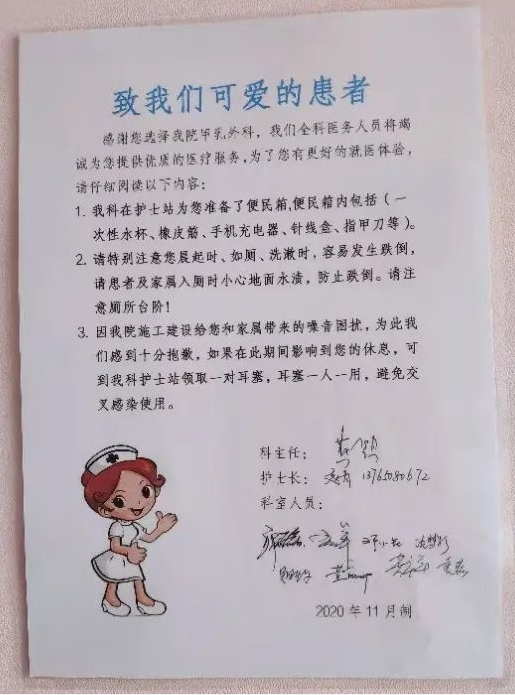 致我们可爱的患者
感谢您选择我院甲乳外科，我们全科医务人员将竭
诚为您提供优质的医疗服务,为了您有更好的就医体验，
请仔细阅读以下内容：
1. 我科在护士站为您准备了便民箱,便民箱内包括（一
次性水杯、橡皮筋、手机充电器、针线盒、指甲刀等）。
2. 请特别注意您晨起时、如厕、洗漱时，容易发生跌倒，
请患者及家属入厕时小心地面水渍，防止跌倒。请注
意厕所台阶！
3. 因我院施工建设给您和家属带来的噪音困扰，为此我
们感到十分抱歉，如果在此期间影响到您的休息，可
到我科护士站领取一对耳塞，耳塞一人一用，避免交
叉感染使用。
科主任：
护士长： 13765080672
科室人员：
2020 年 11 月制